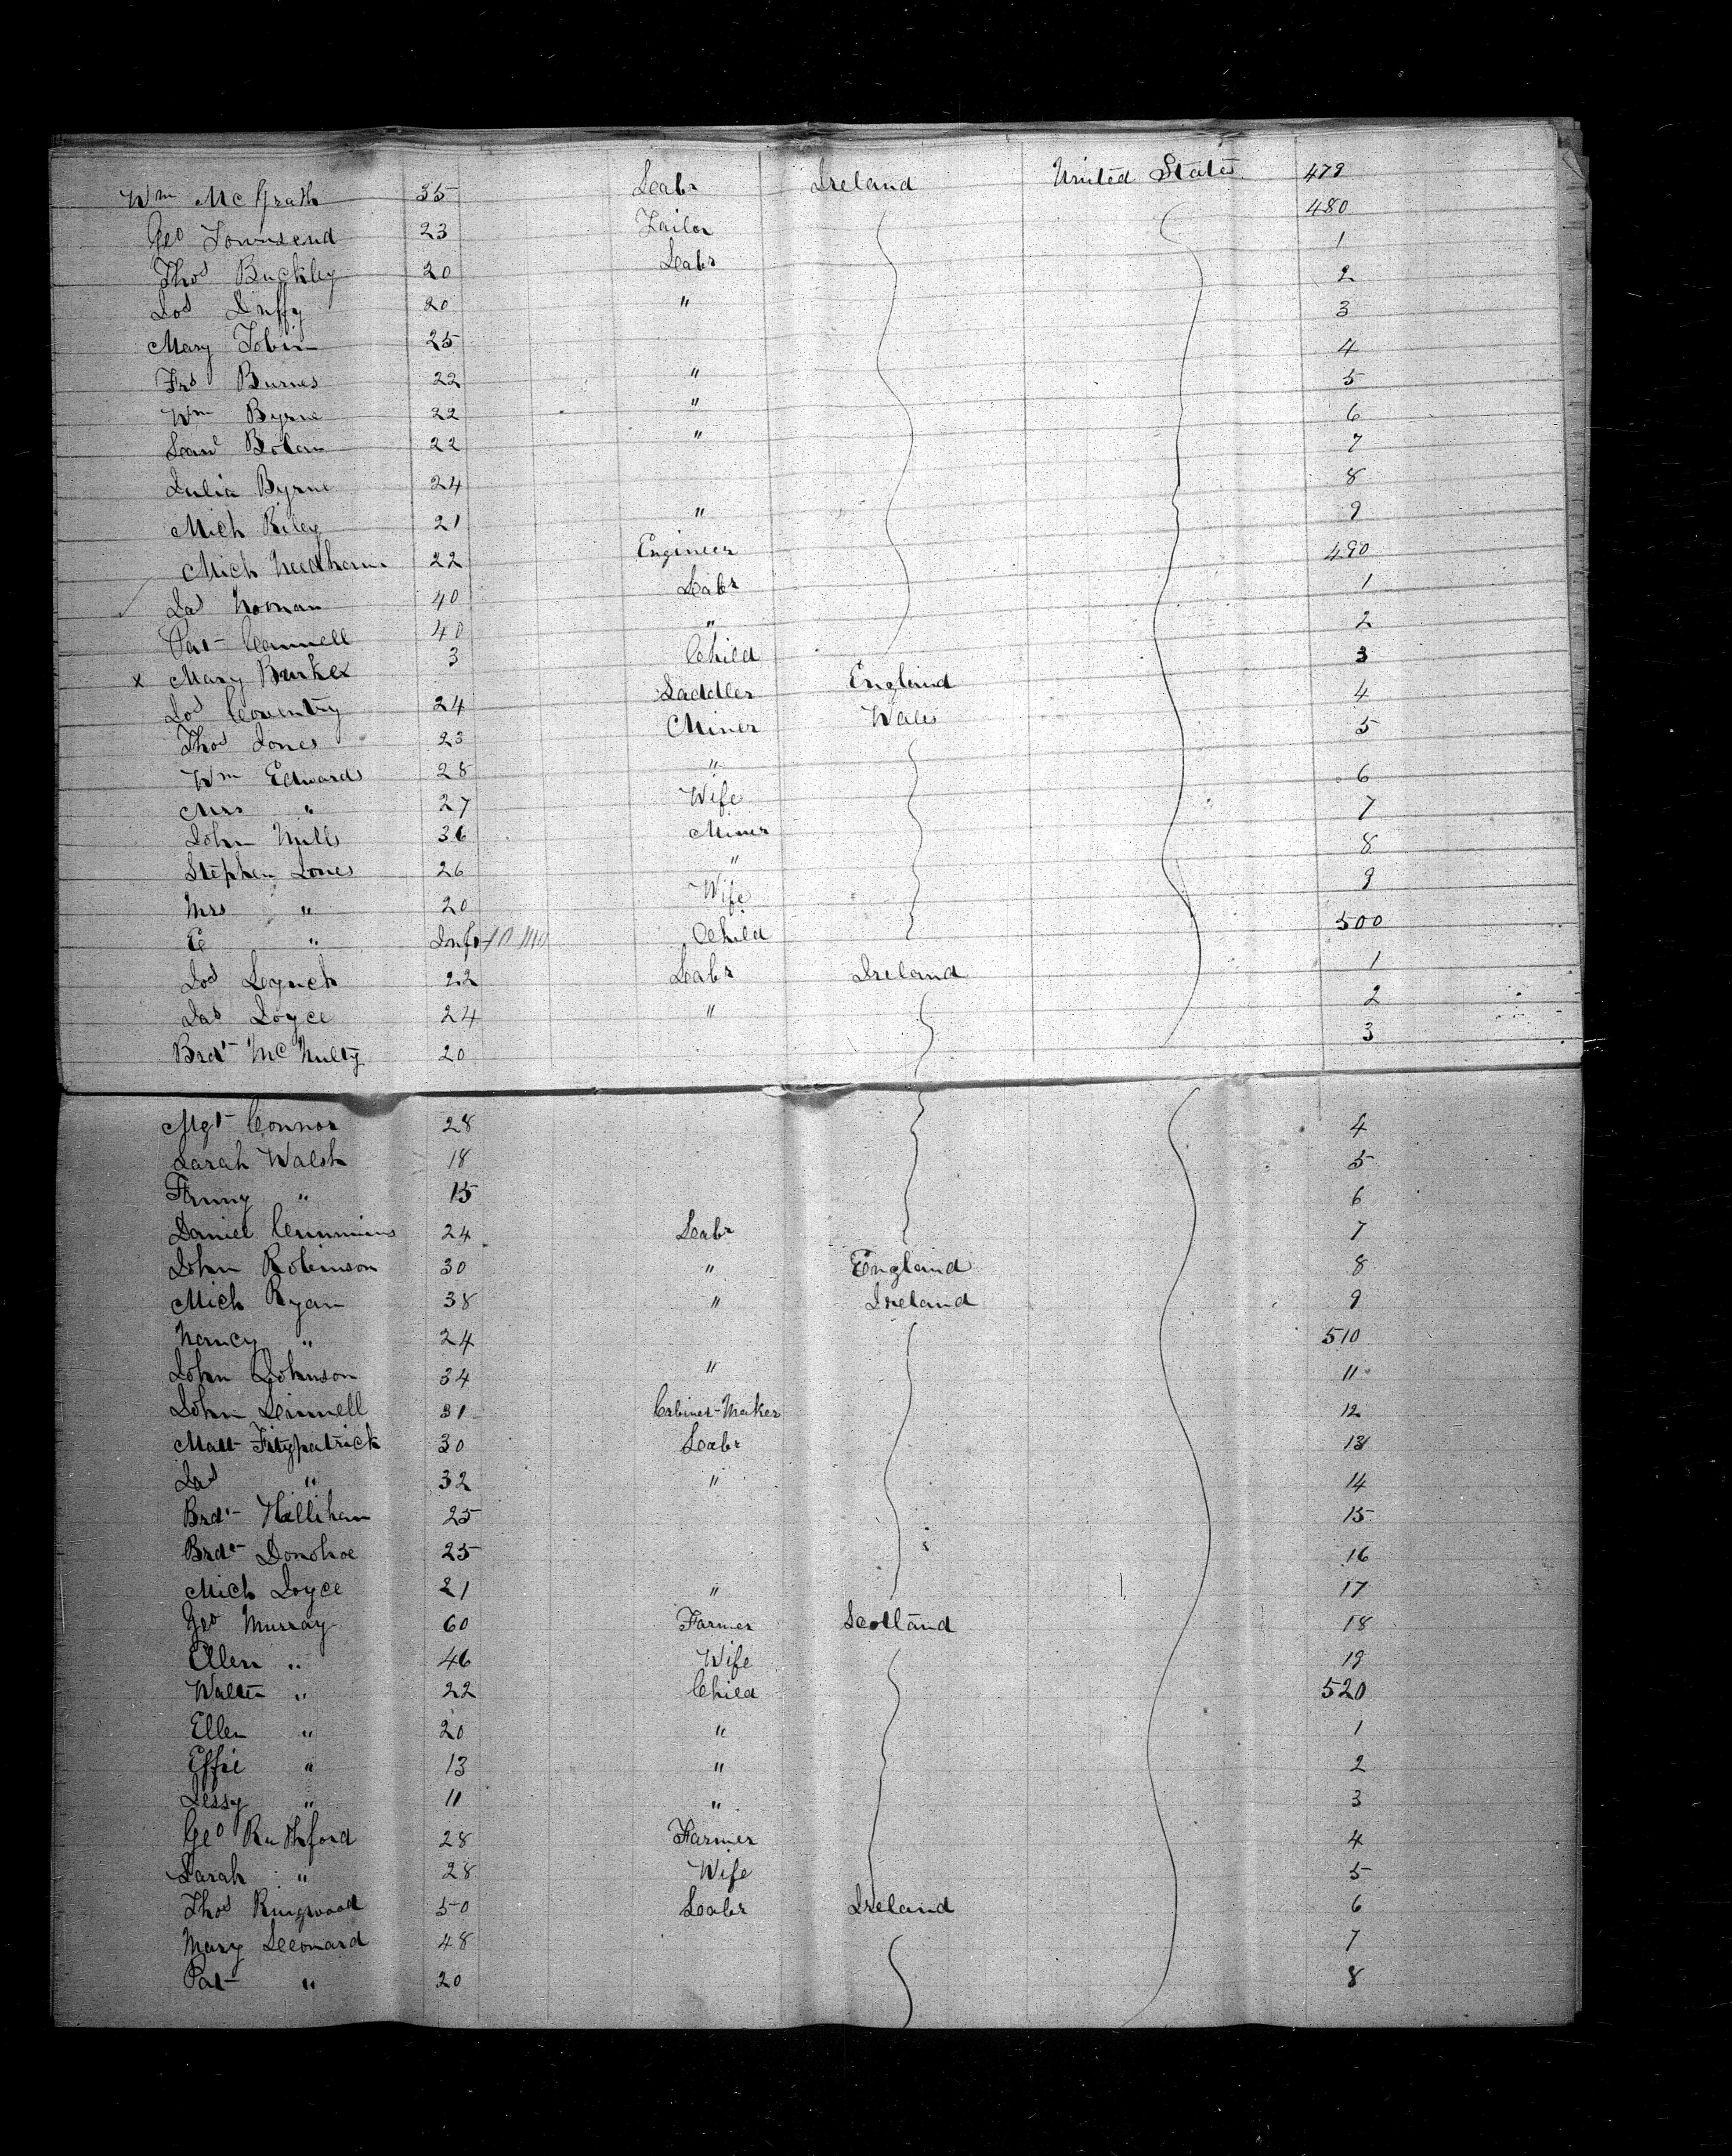 Wm McGrath 35 Labr Ireland United States 479
Geo Townsend 23 Tailor 480
Thos Buckley 20 Labr 1
Jos Duffy 20 " 2
Mary Tobin 25 3
Frs Burnes 22 " 4
Wm Byrne 22 " 5
Bolan 22 " 6
Julia Byrne 24 7
Mich Riley 21 " 8
Mich Needham 22 Engineer 9
Jas Noonan 40 Labr 490
Pat Connell 40 " 1
x Mary Burke x 3 Child 2
Jos Coventry 24 Saddler England 3
Thos Jones 23 Miner Wales 4
Wm Edwards 28 " 5
Mrs " 27 Wife 6
John Mills 36 Miner 7
Stephen Jones 26 " 8
Mrs " 20 Wife 9
" Inft 10 Mo Child 500
Jos Lynch 22 Labr Ireland 1
Jas Joyce 24 " 2
Brdt McNulty 20 3
Mgt Connor 28 4
Sarah Walsh 18 5
Fanny " 15 6
Daniel Cummins 24 Labr 7
John Robinson 30 " England 8
Mich Ryan 38 " Ireland 9
Nancy " 24 510
John Johnson 34 " 11
John 31 Cabinet-Maker 12
Matt Fitzpatrick 30 Labr 13
Jas " 32 " 14
Brdt 25 15
Brdt Donohoe 25 16
Mich Joyce 21 " 17
Geo Murray 60 Farmer Scotland 18
Ellen " 46 Wife 19
Walter " 22 Child 520
Ellen " 20 " 1
Effie " 13 " 2
Jessy " 11 " 3
Geo Ruthford 28 Farmer 4
Sarah " 28 Wife 5
Thos Ringwood 50 Labr Ireland 6
Mary Leonard 48 7
Pat " 20 8